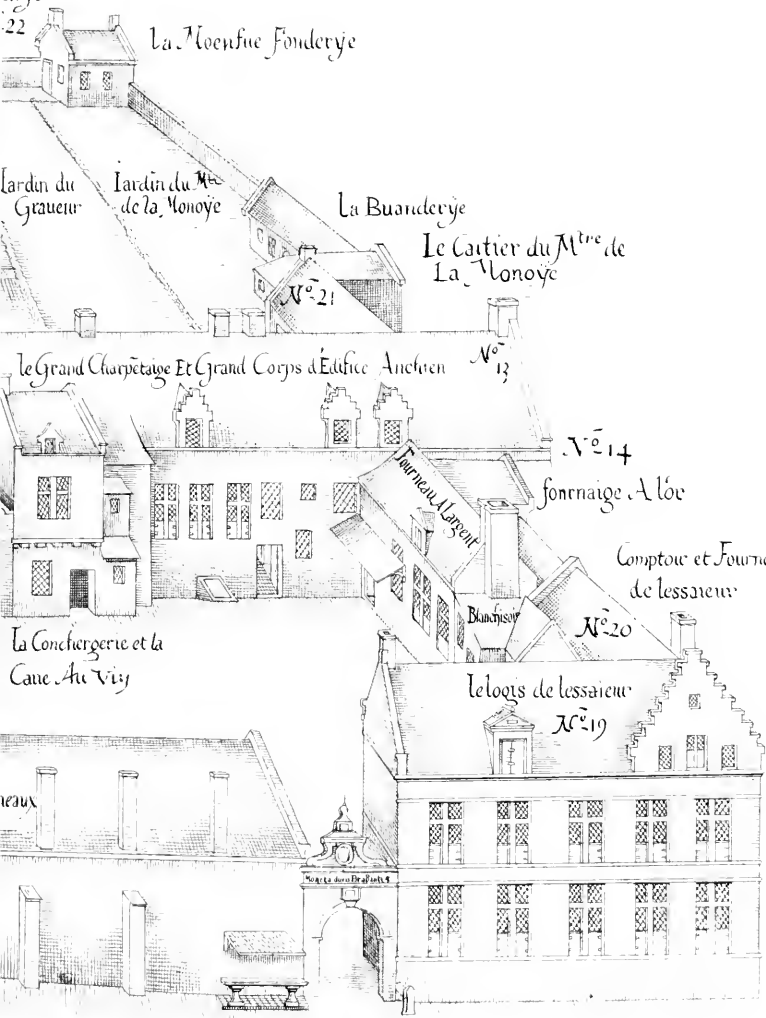 22
La Moenfue Fonderye
Jardin du
Graueur
Jardin du Mtre
de la Monoÿe
La Buanderÿe
Le Cartier du Mtre de
La Monoÿe
No 21
le Grand Charpētaige Et Grand Corps d'Edifice Anchien
No
13
No 14
fournaige A lor
Fourneau A Largent
Comptoir et Fourn
de lessaieur
Blanchisoir
No 20
La Conchergerie et la
Caue Au Vin
le logis de lessaieur
No 19
neaux
Moneta ducis Brabantie